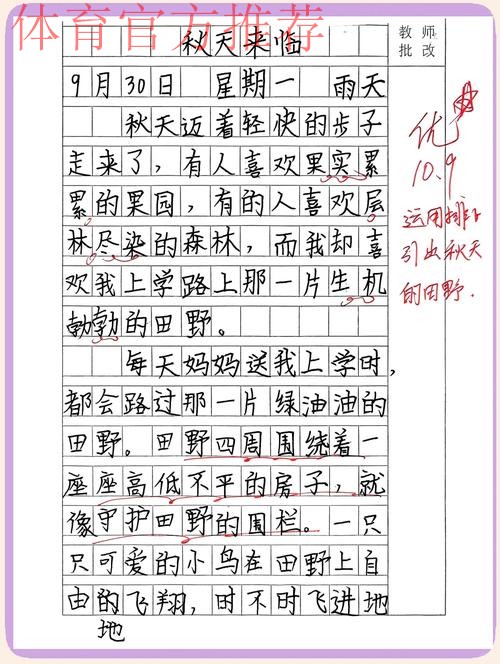 体育官方推荐
秋天来临
教师
批改
9月30日 星期一 雨天
秋天迈着轻快的步子
走来了，有人喜欢果实累
累的果园，有的人喜欢层
林尽染的森林，而我却喜
欢我上学路上那一片生机
勃勃的田野。
每天妈妈送我上学时，
都会路过那一片绿油油的
田野。田野四周围绕着一
座座高低不平的房子，就
像守护田野的围栏。一只
只可爱的小鸟在田野上自
由的飞翔，时不时飞进地
地
优
10.9
运用排比
引出秋天
的田野.